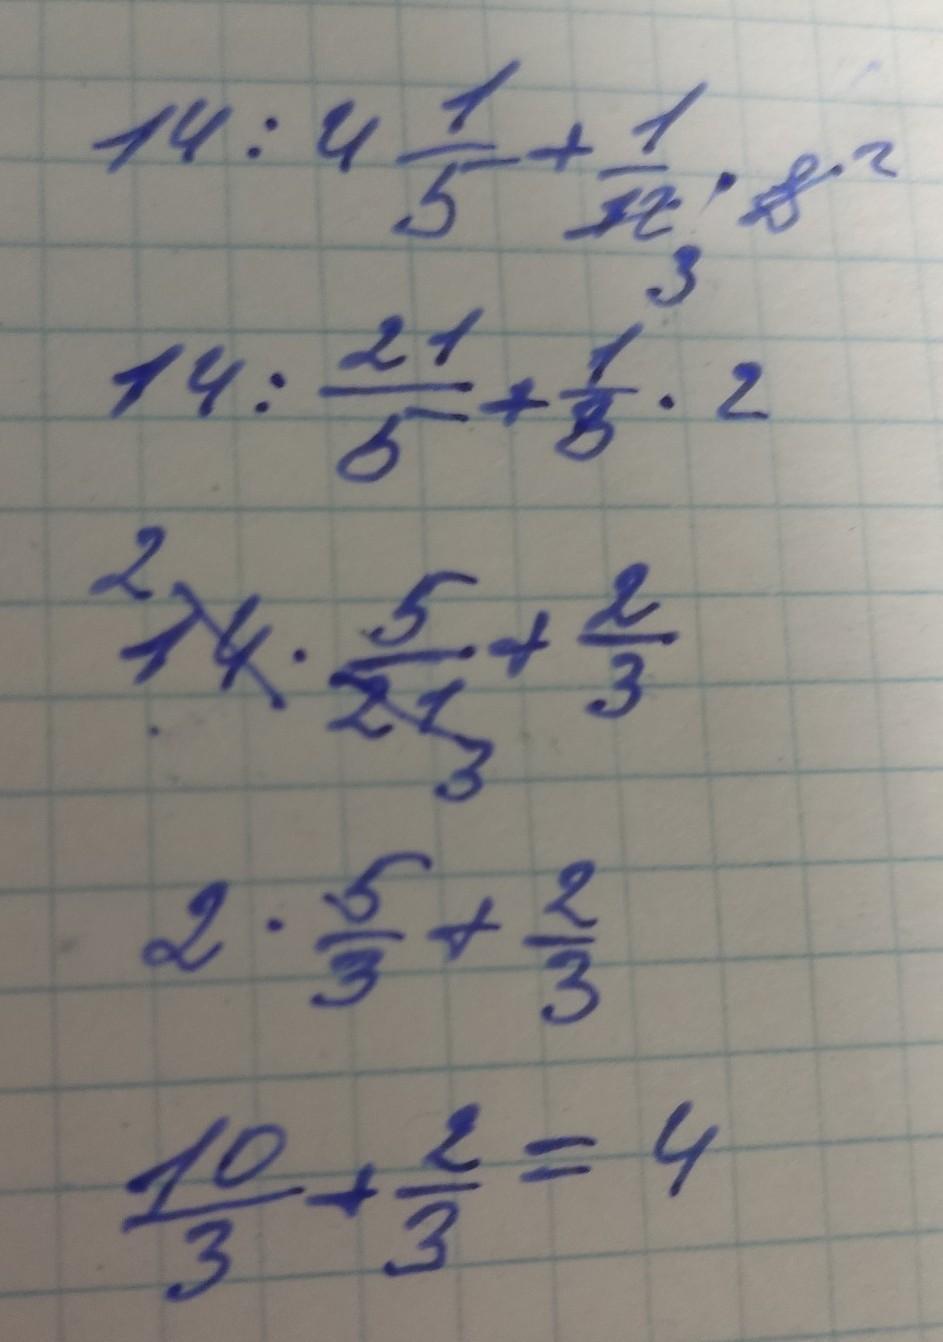 14 : 4 1/5 + 1/12 · 8 2
3
14 : 21/5 + 1/3 · 2
2
14 · 5/21 + 2/3
3
2 · 5/3 + 2/3
10/3 + 2/3 = 4